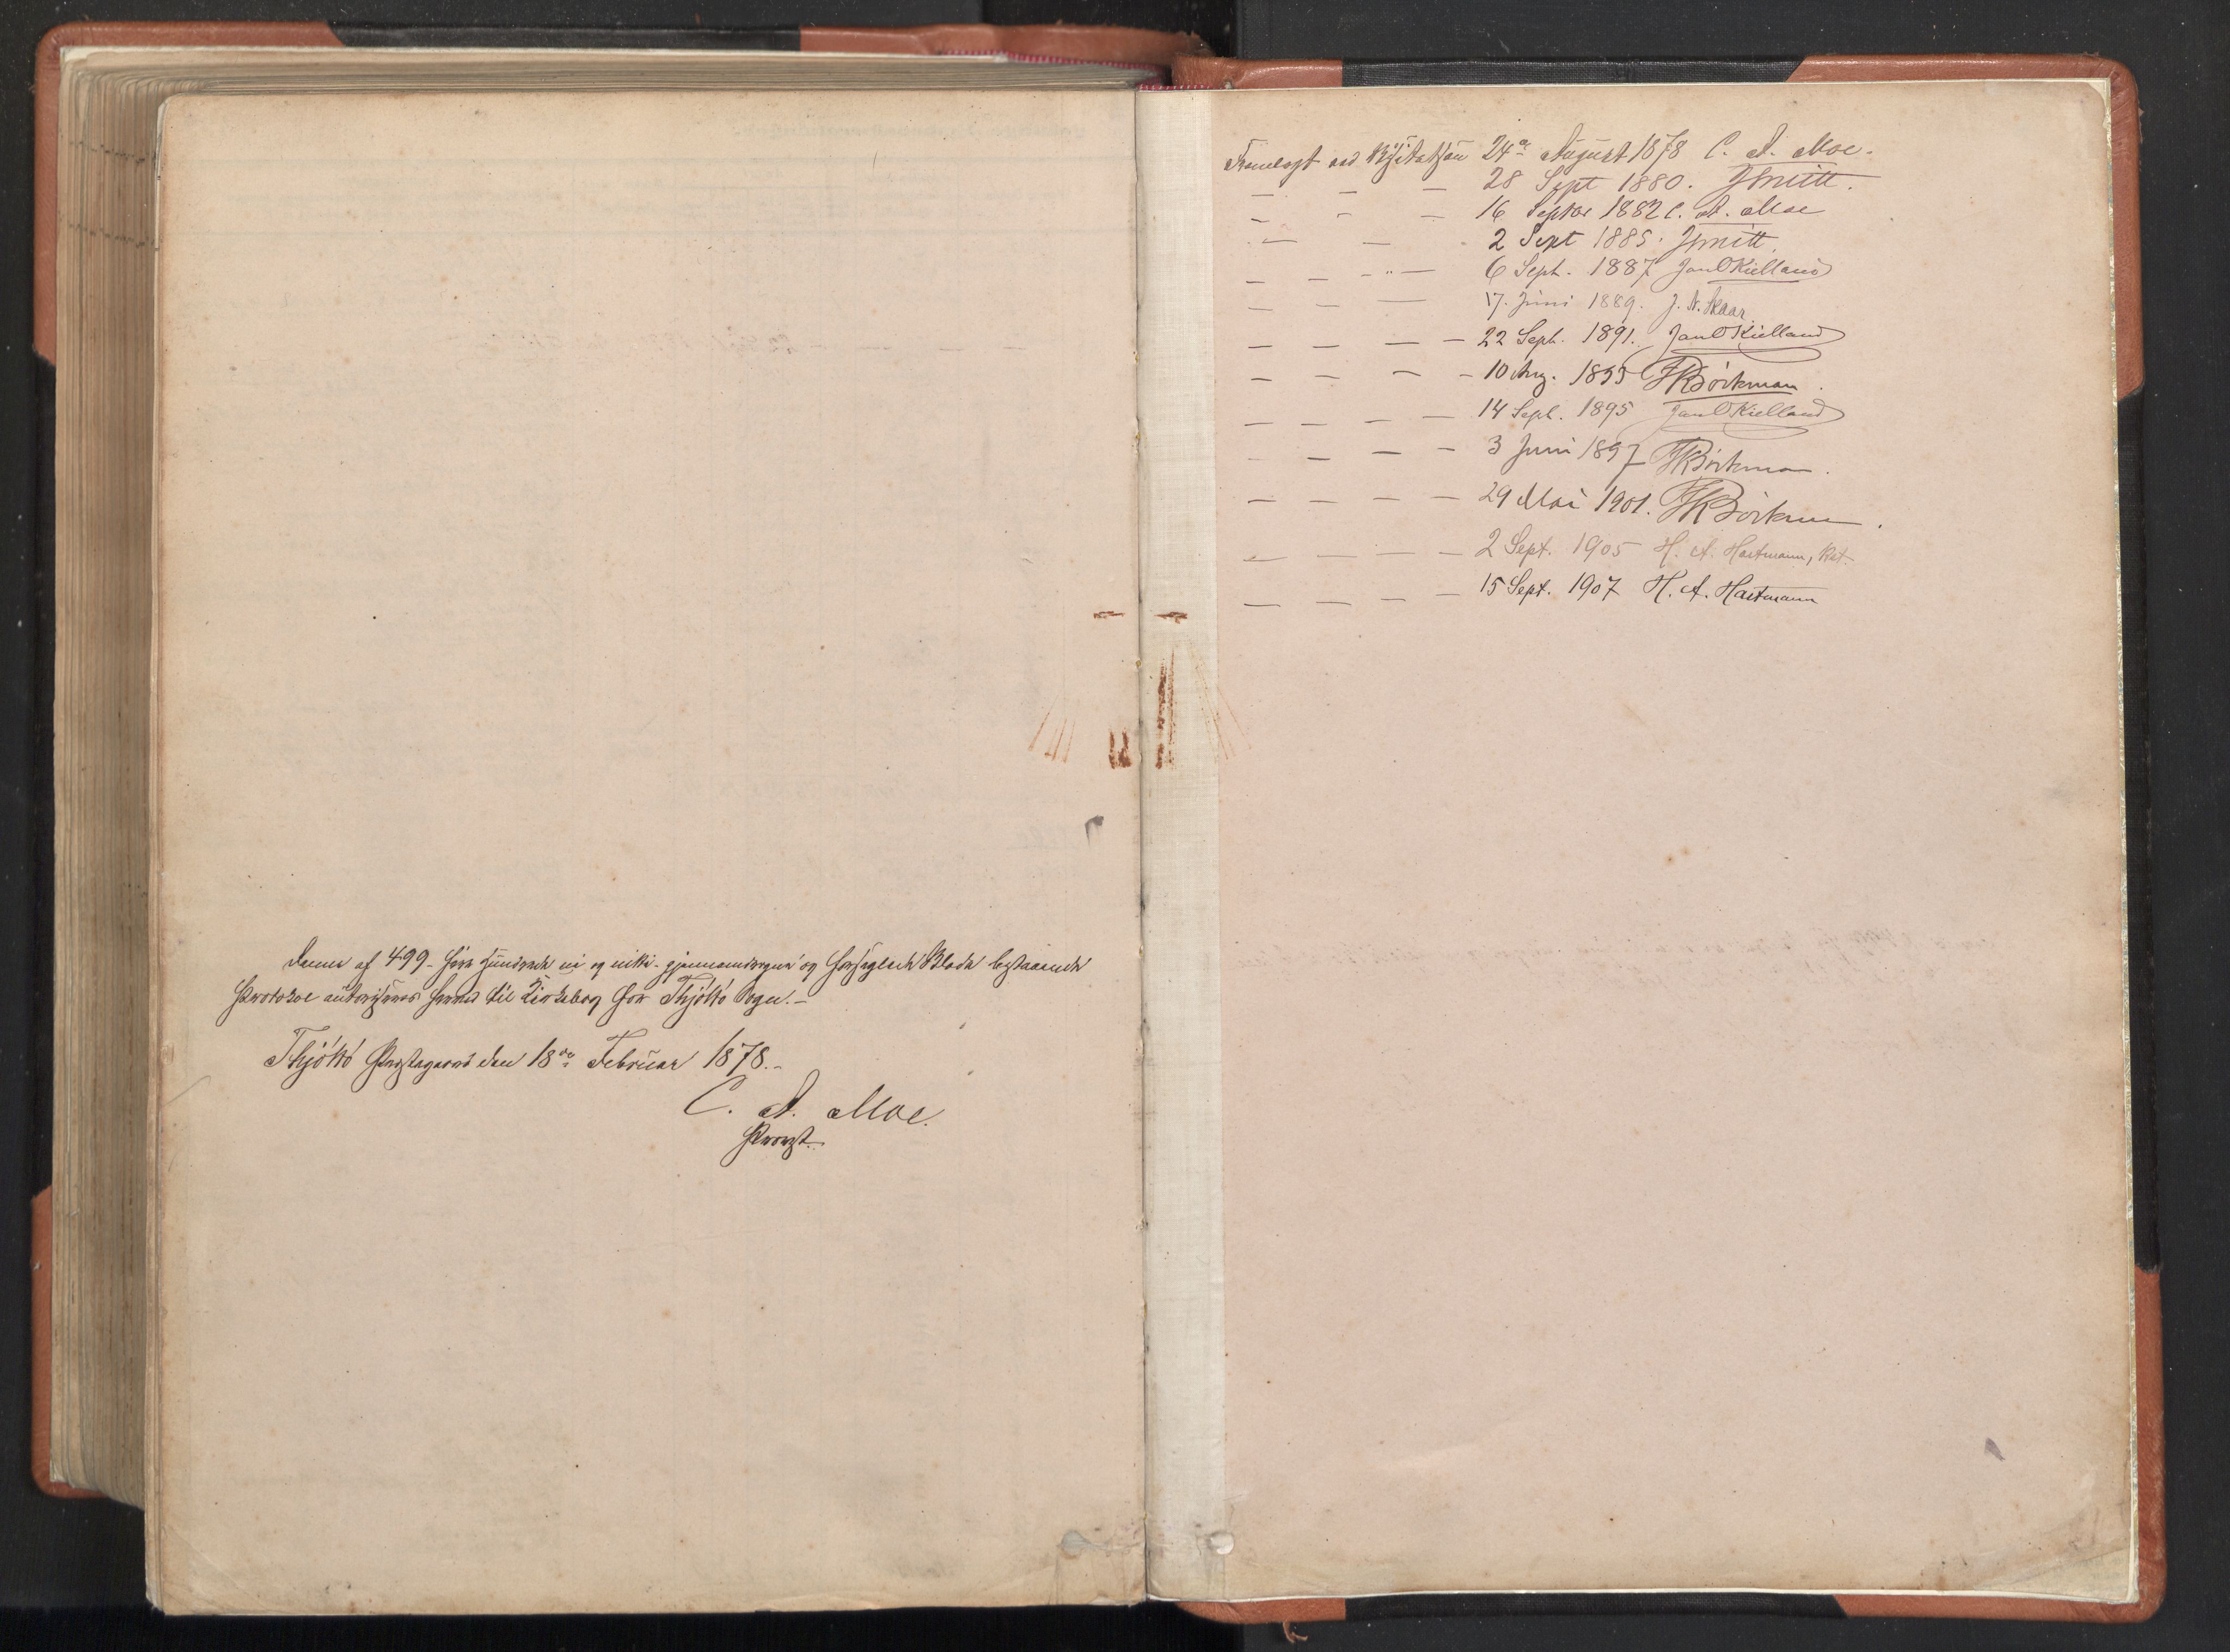 Denne af 499 - fire Hundrede ni og nitti - gjennemdragne og forseglede Blade bestaaende
Protokol autoriseres herved til Kirkebog for Thjöttö Sogn. -
Thjöttö Prestegaard den 18de Februar 1878. -
C. A. Moe.
Provst.
Fremlagt ved Visitatsen 24de August 1878 C. A. Moe.
— — — 28 Sept 1880. Smitt.
— — — 16 Septbr 1882 C. A. Moe
— — 2 Sept 1885. Smitt.
— — — 6 Sept. 1887 Jan O Kielland
— — — 17. Juni 1889. J. N. Skaar.
— — — — 22 Sept. 1891. Jan O Kielland
— — — — 10 Aug. 1893 Börkman.
— — — — 14 Sept. 1895 Jan O Kielland
— — — — 3 Juni 1897 Börkman.
— — — — 29 Mai 1901. Börkman.
— — — — 2 Sept. 1905 H. A. Hartmann,
— — — — 15 Sept. 1907 H. A. Hartmann